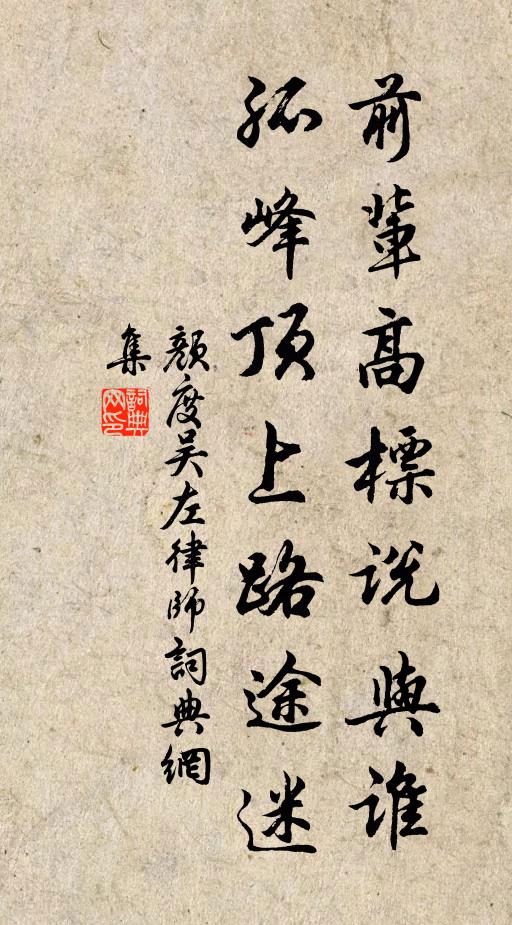 前輩高標説與誰
孤峰頂上路途迷
顏度吴左律師詞典網
集
詞典網印